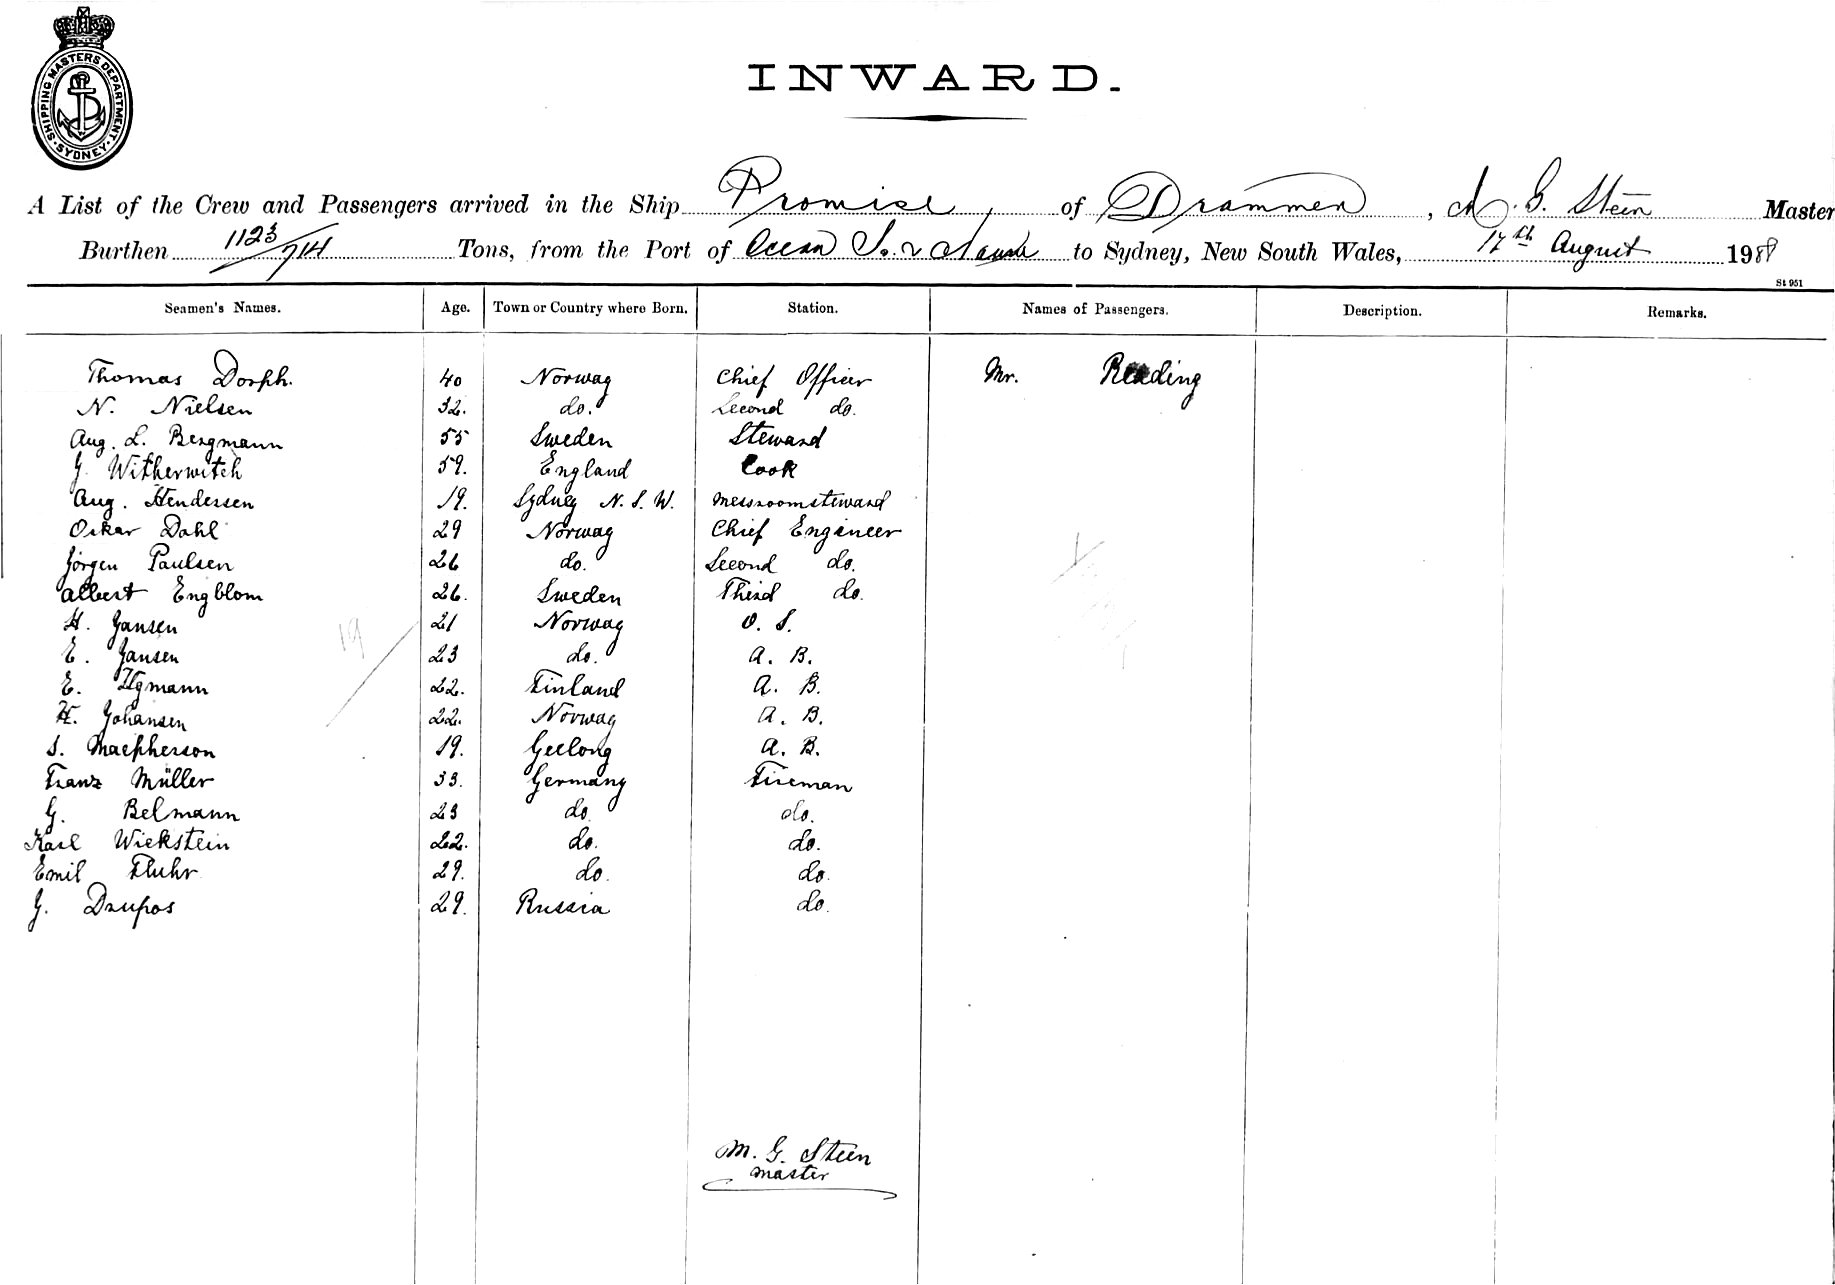 SHIPPING MASTERS DEPARTMENT. SYDNEY.
INWARD.
A List of the Crew and Passengers arrived in the Ship Promise, of Drammen, M. G. Steen Master
Burthen 1123/714 Tons, from the Port of Ocean Is. & Nauru to Sydney, New South Wales, 17th August 1908
St 951
Seamen's Names. Age. Town or Country where Born. Station. Names of Passengers. Description. Remarks.
Thomas Dorph. 40 Norway Chief Officer Mr. Reading
N. Nielsen 32. do. Second do.
Aug. L. Bergmann 55 Sweden Steward
J. Witherwitch 59. England Cook
Aug. Hendersen 19. Sydney N. S. W. Messroomsteward
Oskar Dahl 29 Norway Chief Engineer
Jörgen Paulsen 26 do. Second do.
Albert Engblom 26. Sweden Third do.
H. Jansen 21 Norway O. S.
E. Jansen 23 do. A. B.
E. Hymann 22. Finland A. B.
H. Johansen 22. Norway A. B.
S. Macpherson 19. Geelong A. B.
Franz Müller 33. Germany Fireman
G. Belmann 23 do. do.
Karl Wickstein 22. do. do.
Emil Fluhr 29. do. do.
J. Drupos 29. Russia do.
19
M. G. Steen
Master